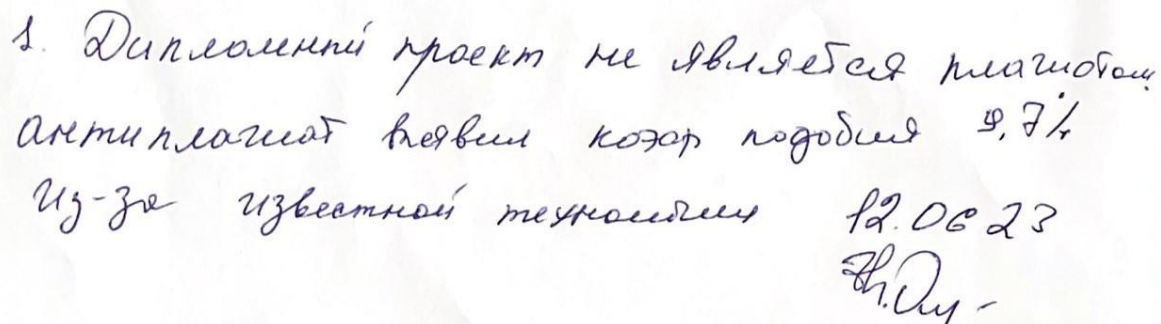 1. Дипломный проект не является плагиатом.
антиплагиат выявил коэф подобия 9,7%
Из-за известной технологии 12.06 23